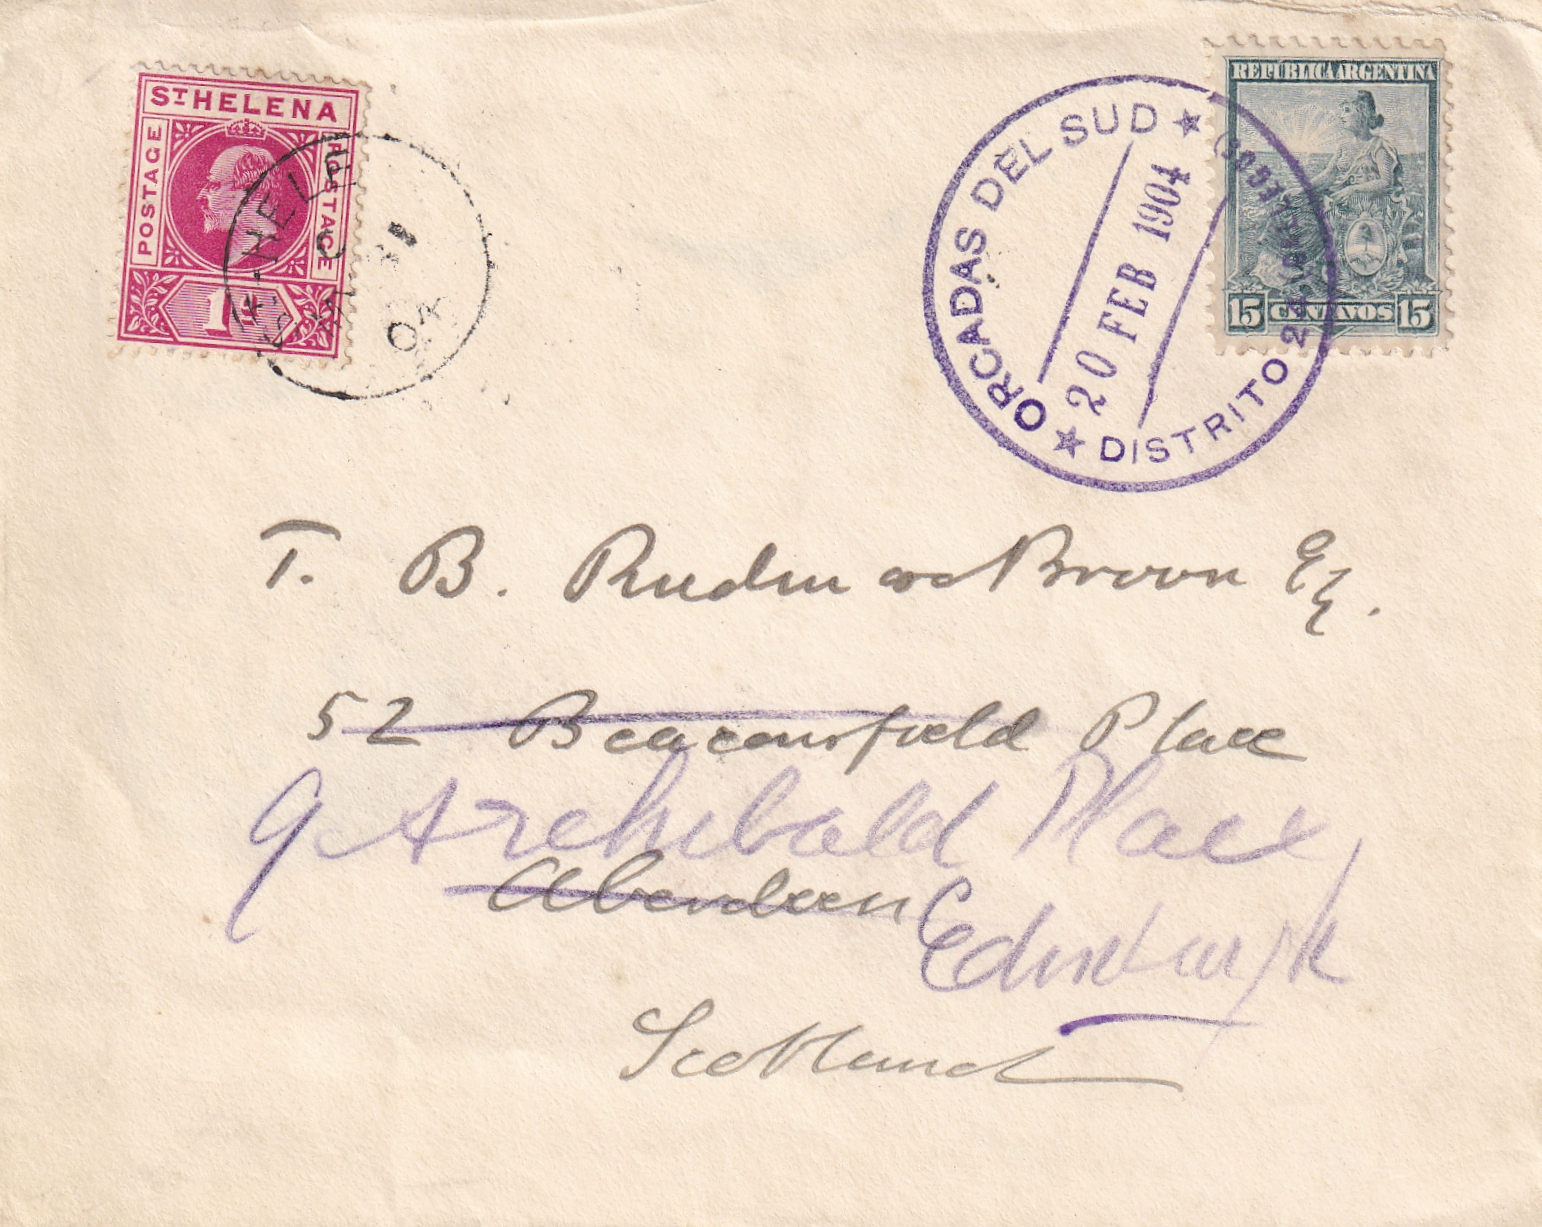 ST HELENA
POSTAGE
POSTAGE
1d
ST. HELE
MA 31
04
REPÚBLICA ARGENTINA
15 CENTAVOS 15
ORCADAS DEL SUD
20 FEB 1904
DISTRITO 24
T. B. Brown Esq.
52 Beaconsfield Place
9 Archibald Place,
Aberdeen
Edinburgh
Scotland